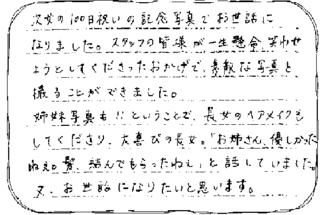 次女の100日祝いの記念写真でお世話に
なりました。スタッフの皆様が一生懸命、笑わせ
ようとしてくださったおかげで、素敵な写真を
撮ることができました。
姉妹写真も!!ということで、長女のヘアメイクも
してくださり、大喜びの長女。「お姉さん、優しかった
ねぇ。髪、結んでもらったねぇ」と話していました。
又、お世話になりたいと思います。